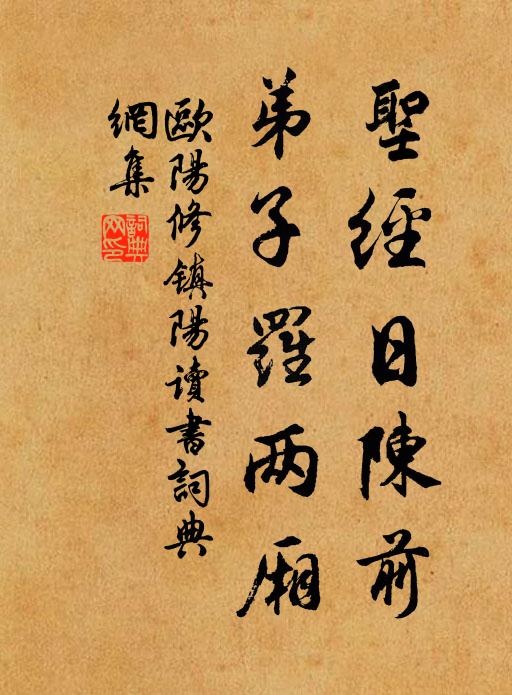 聖經日陳前
弟子羅两厢
歐陽修鎮陽讀書詞典
網集
詞典网印